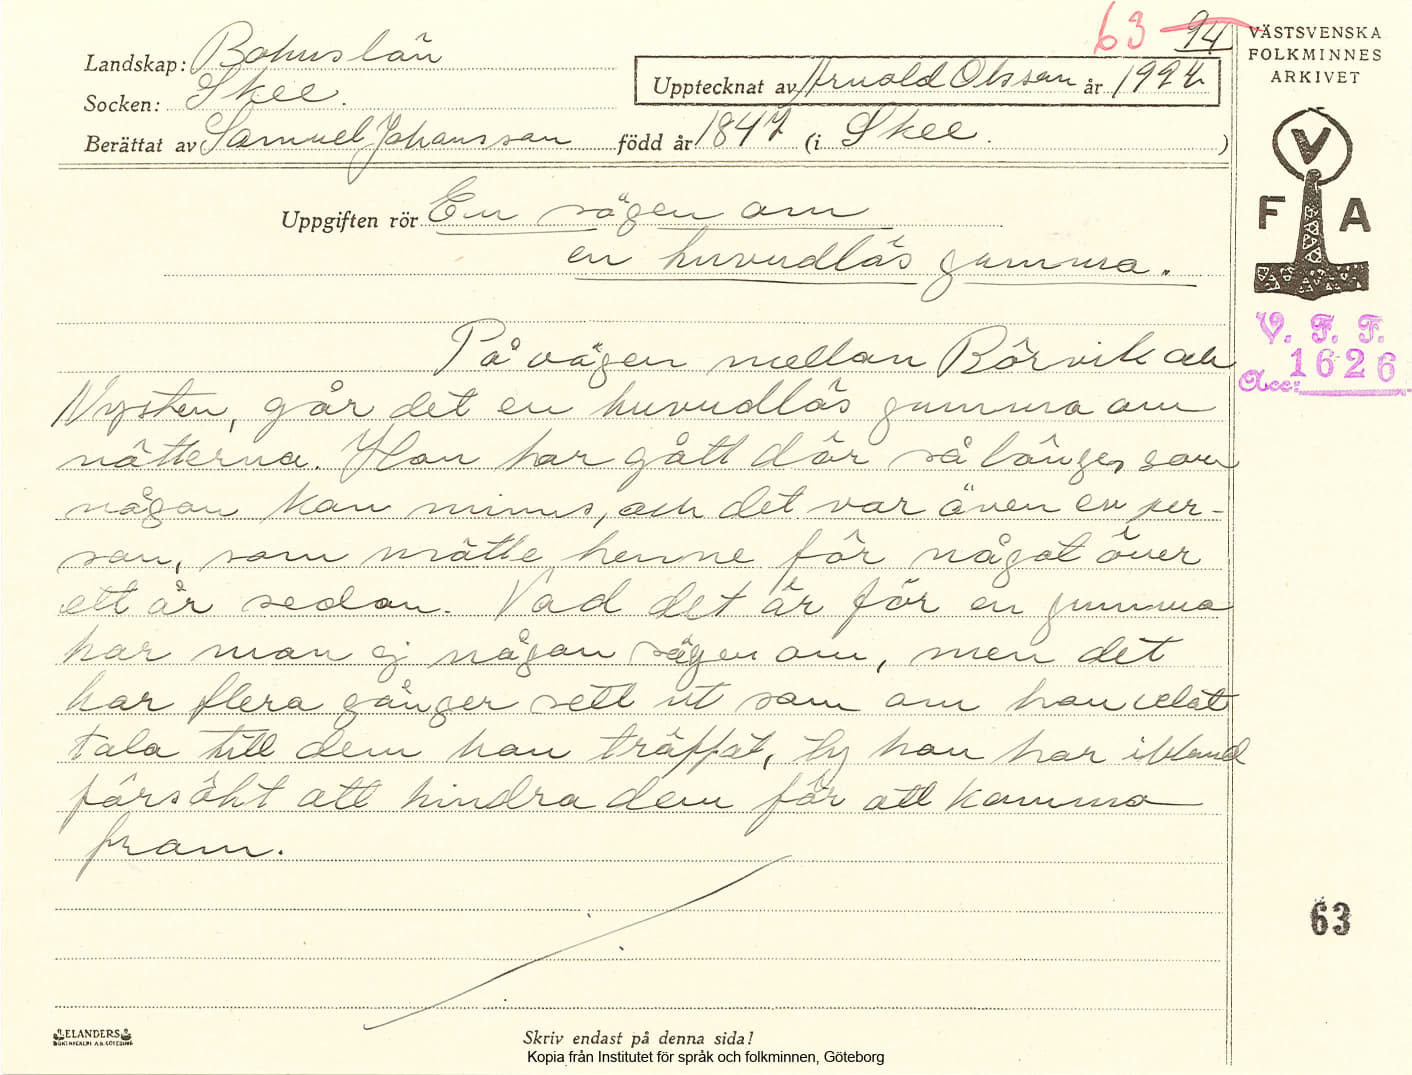 63 94
VÄSTSVENSKA
FOLKMINNES
ARKIVET
Landskap: Bohuslän
Socken: Skee.
Upptecknat av Arnold Olsson år 1924
Berättat av Samuel Johansson född år 1847 (i Skee. )
V
F A
Uppgiften rör En sägen om
en huvudlös gumma.
V. F. F.
Acc: 1626
På vägen mellan Börvik och
Nysten, går det en huvudlös gumma om
nätterna. Hon har gått där så länge, som
någon kan minns, och det var även en per-
son, som mötte henne för något över
ett år sedan. Vad det är för en gumma
har man ej någon sägen om, men det
har flera gånger sett ut som om hon velat
tala till dem hon träffat, ty hon har ibland
försökt att hindra dem för att komma
fram.
63
ELANDERS
BOKTRYCKERI A.B. GÖTEBORG
Skriv endast på denna sida!
Kopia från Institutet för språk och folkminnen, Göteborg